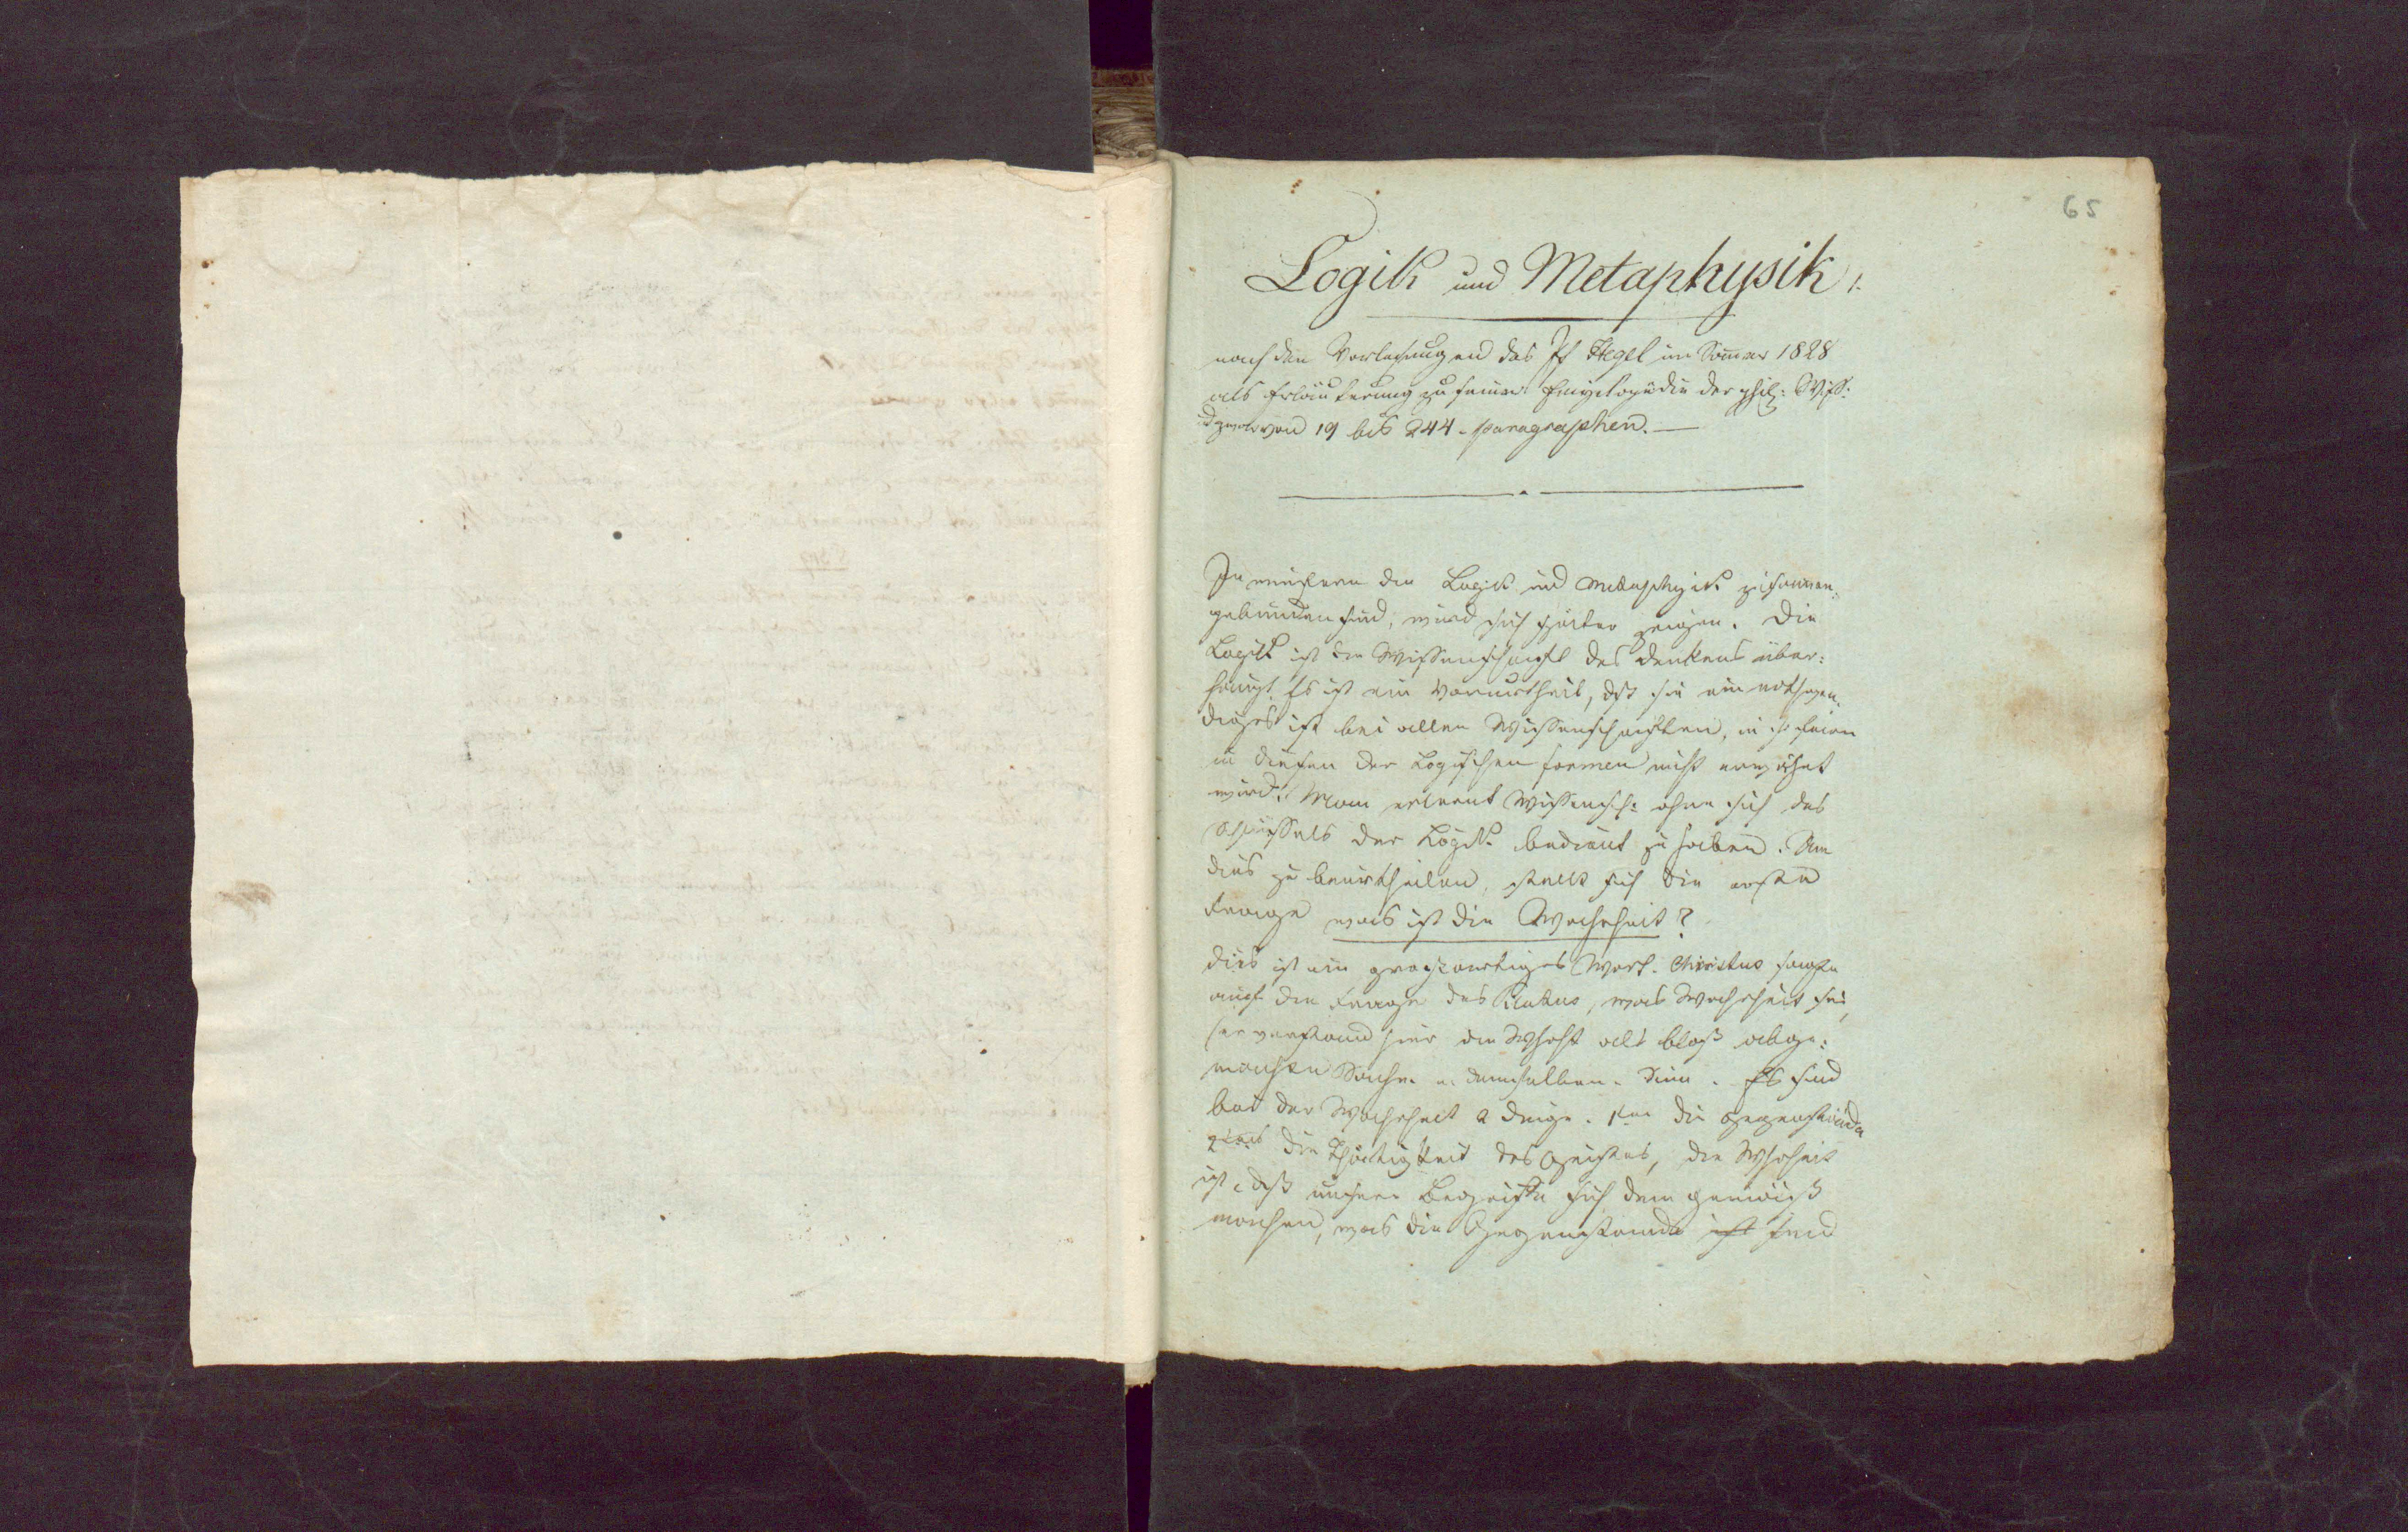 65
Logik und Metaphysik
nach den Vorlesungen des Pf Hegel im Sommer 1828
als Erläuterung zu seiner Encyclopädie der phil: Wiss:
u zwar von 19 bis 244 paragraphen. —
In wiefern die Logik und Metaphysik zusammen-
gebunden sind, wird sich später zeigen. Die
Logik ist die Wissenschaft des Denkens über-
haupt. Es ist ein Vorurtheil, dß sie ein nothwen-
diges ist bei allen Wissenschaften, in sofern
in diesen der Logischen formen nicht erwähnt
wird. Man erlernt Wissensch: ohne sich des
Schlüssels der Logik bedient zu haben. Um
dies zu beurtheilen, stellt sich die erste
Frage was ist die Wahrheit?
Dies ist ein großartiges Wort. Christus sagte
auf die Frage des Pilatus, was Wahrheit sei,
(er verstand hier die Whrht als bloß abge-
machte Sache in demselben Sinn. Es sind
bei der Wahrheit 2 Dinge. 1tens die Gegenstände
2tens die Thätigkeit des Geistes, die Whrheit
ist, dß unsere Begriffe sich dem gemäß
machen, was die Gegenstände ist sind